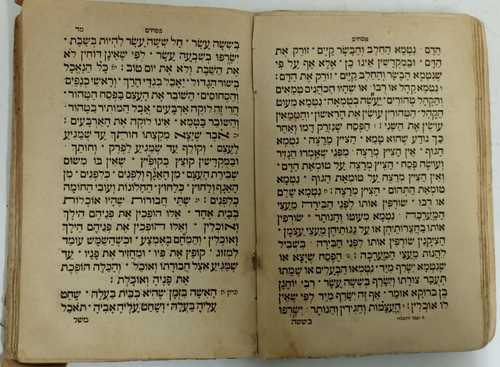 פסחים
הדם · נטמא החלב והבשר קיים · זורק את
הדם · ובמקדשין אינו כן · אלא אף על פי
שנטמא הבשר והחלב קיים · זורק את הדם:
נטמא קהל או רבו · או שהיו הכהנים טמאים
והקהל טהורים · יעשה בטמאה · נטמא מעוט
הקהל · הטהורין עושין את הראשון · והטמאין
עושין את השני: הפסח שנזרק דמו ואחר
כך נודע שהוא טמא · הציץ מרצה · נטמא
הגוף · אין הציץ מרצה · מפני שאמרו הנזיר
ועושה פסח · הציץ מרצה על טומאת הדם ·
ואין הציץ מרצה על טומאת הגוף · נטמא
טומאת התהום · הציץ מרצה: נטמא שלם
או רבו · שורפין אותו לפני הבירה מעצי
המערכה · נטמא מעוטו והנותר · שורפין
אותו בחצרותיהן או על גגותיהן מעצי עצמן ·
הציקנין שורפין אותו לפני הבירה · בשביל
להנות מעצי המערכה: הפסח שיצא או
שנטמא ישרף מיד · נטמאו הבעלים או שמתו
תעבר צורתו וישרף בששה עשר · רבי יוחנן
בן ברוקא אומר · אף זה ישרף מיד לפי שאין
לו אוכלין: העצמות והגידין והנותר · ישרפו
בששה
פסחים
מד
בששה עשר · חל ששה עשר להיות בשבת ·
ישרפו בשבעה עשר · לפי שאינן דוחין לא
את השבת ולא את יום טוב: כל הנאכל
בשור הגדול · יאכל בגדי הרך · וראשי כנפים
והסחוסים · השובר את העצם בפסח הטהור ·
הרי זה לוקה ארבעים · אבל המותיר בטהור
והשובר בטמא · אינו לוקה את הארבעים:
אבר שיצא מקצתו חותך עד שמגיע
לעצם · וקולף עד שמגיע לפרק · וחותך ·
ובמקדשין קוצץ בקופיץ · שאין בו משום
שבירת העצם · מן האגף ולפנים · כלפנים · מן
האגף ולחוץ · כלחוץ · החלונות ועובי החומה
כלפנים: שתי חבורות שהיו אוכלות
בבית אחד · אלו הופכין את פניהם הילך
ואוכלין · ואלו הופכין את פניהם הילך
ואוכלין · והמחם באמצע · וכשהשמש עומד
למזוג · קופץ את פיו · ומחזיר את פניו · עד
שמגיע אצל חבורתו ואוכל · והכלה הופכת
את פניה ואוכלת:
האשה בזמן שהיא בבית בעלה · שחט
עליה בעלה · ושחט עליה אביה · תאכל
משל